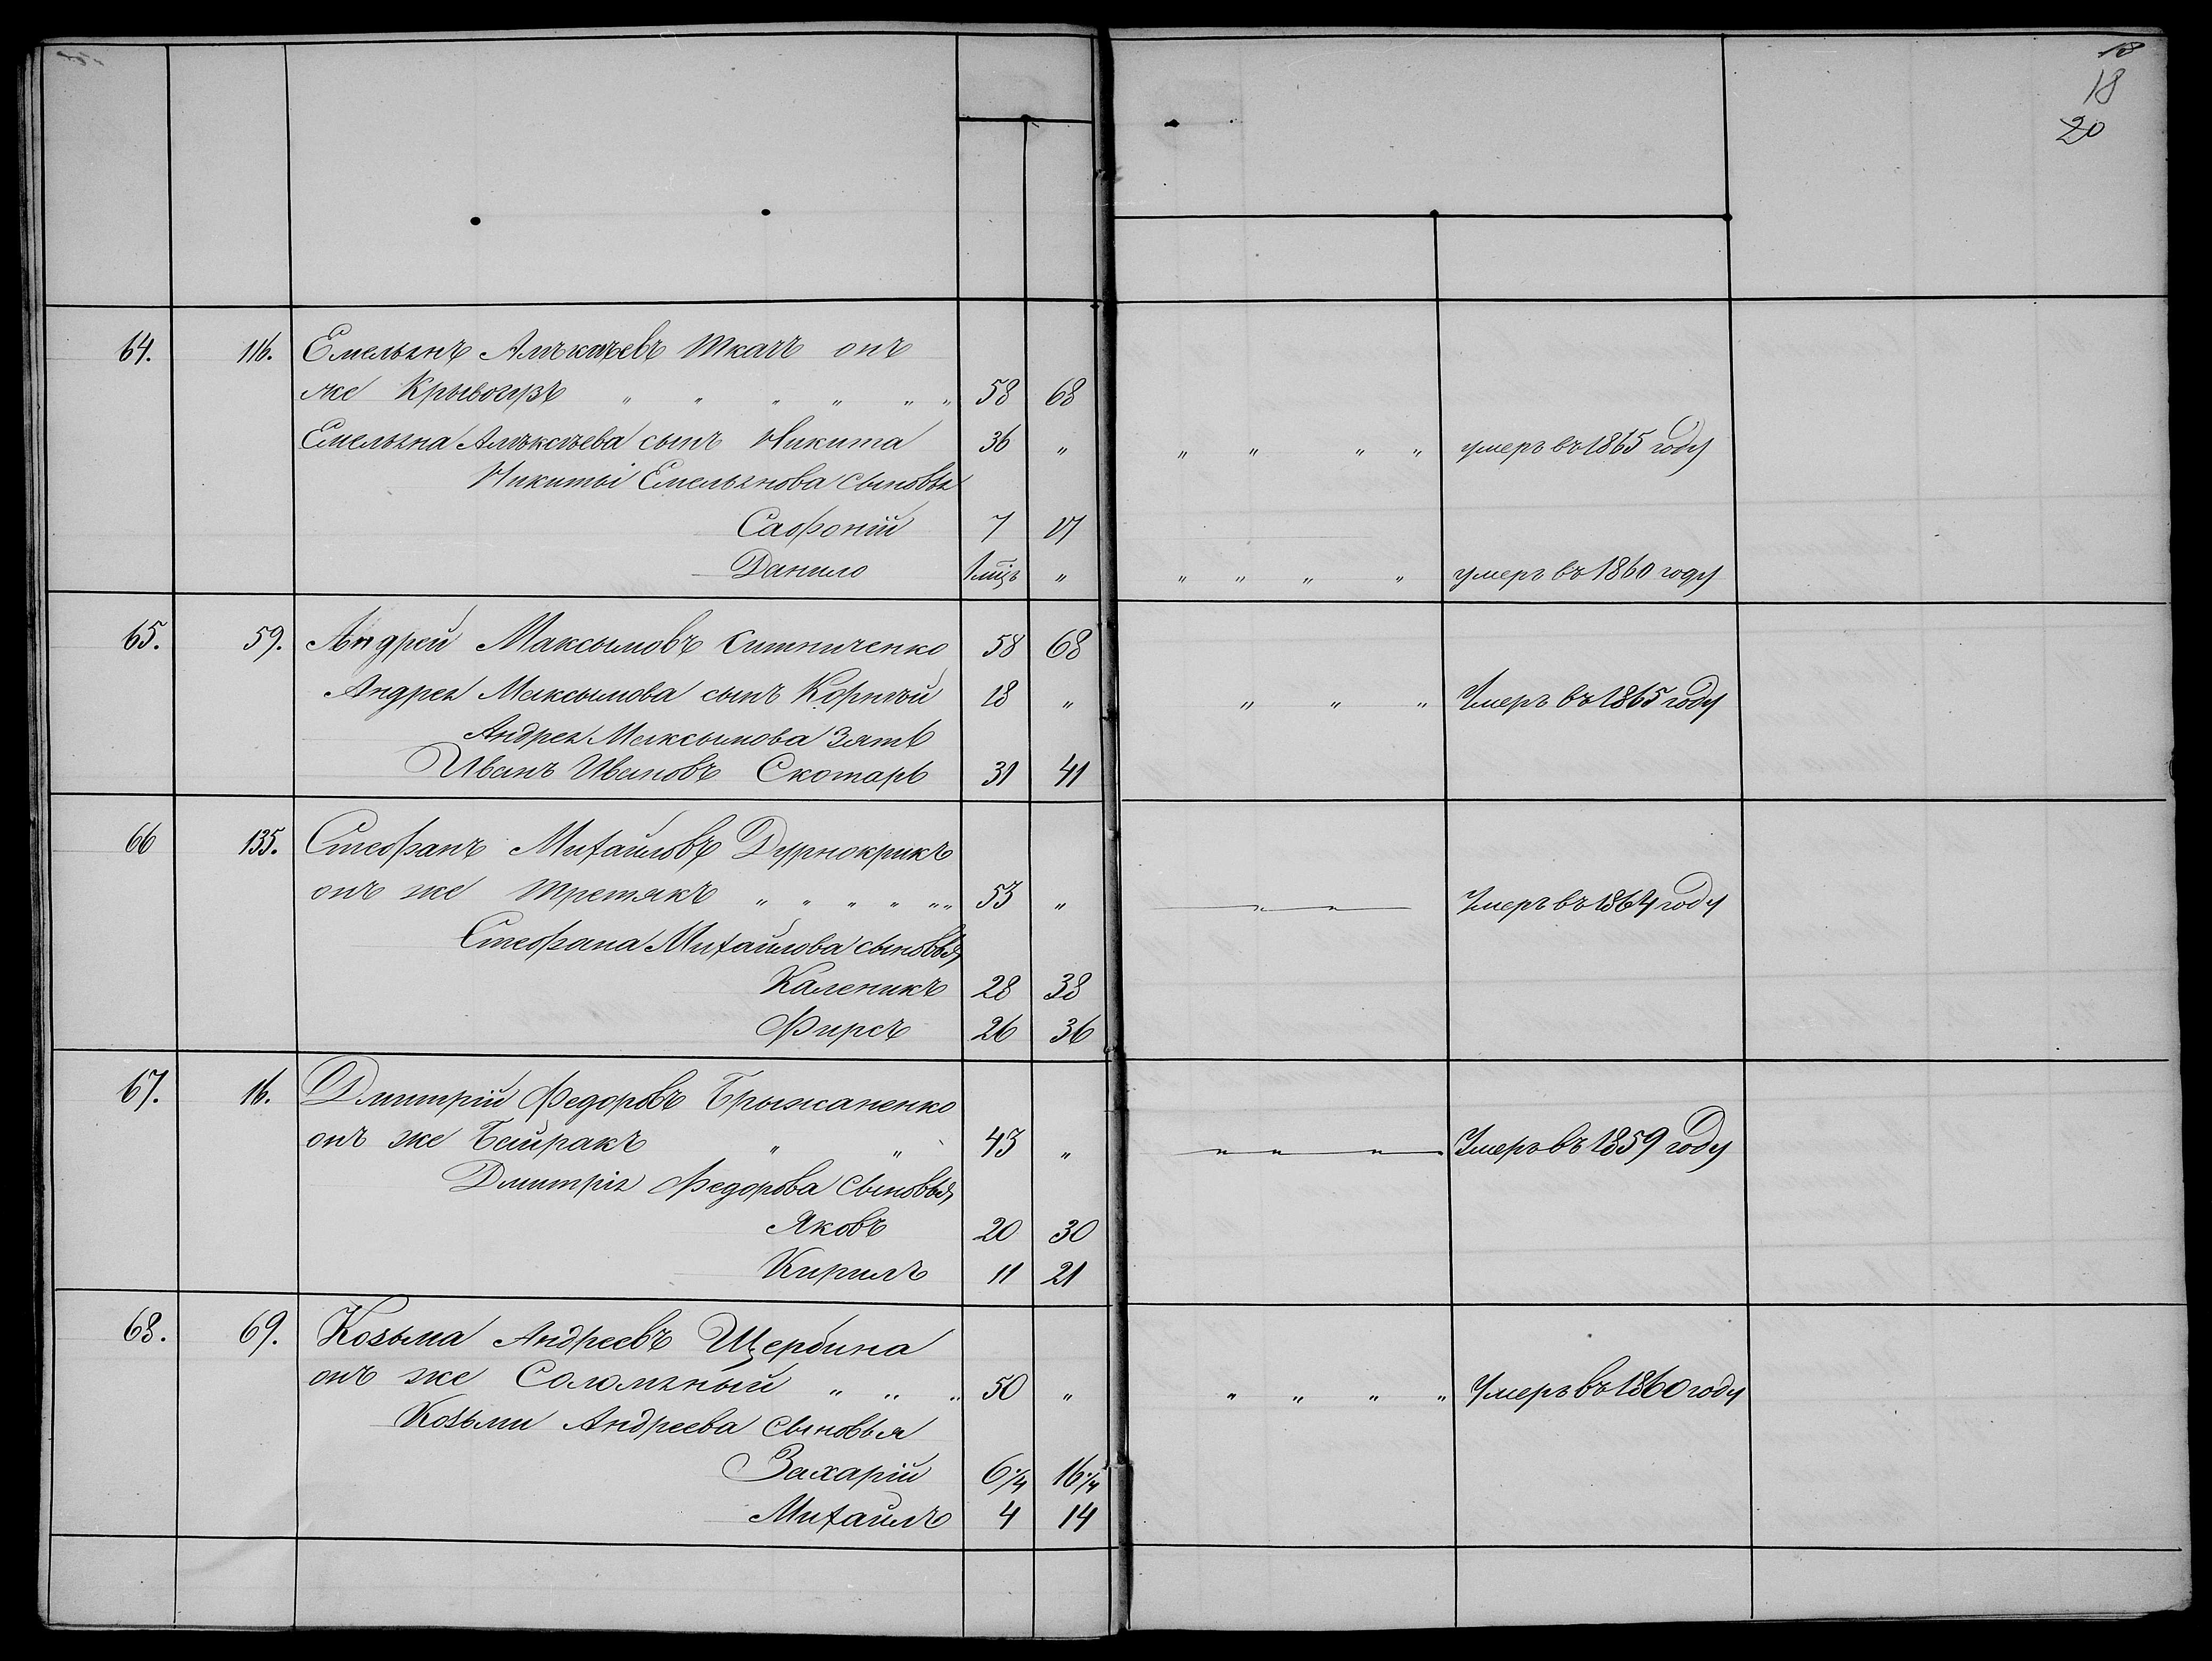 18
18
20
64. 116. Емельянъ Алѣксѣевъ Ткачъ онъ
же Кривогузъ " " " " " " 58 68
Емельяна Алѣксѣева сынъ Никита 36 " " " " " умеръ въ 1865 году
Никиты Емельянова сыновья
Сафоній 7 17
Данило 1 мѣц. " " " " " умеръ въ 1860 году
65. 59. Андрей Максымовъ Ситниченко 58 68
Андрея Максымова сынъ Корнѣй 18 " " " " Умеръ въ 1865 году
Андрея Максымова Зять
Иванъ Ивановъ Скотарь 31 41
66 135. Стефанъ Михайловъ Дурнокрикъ
онъ же Третякъ " " " " " " 53 " " " Умеръ въ 1864 году
Стефана Михайлова сыновья
Каленикъ 28 38
Фирсъ 26 36
67. 16. Дмитрій Федоровъ Брыжаненко
онъ же Байракъ " " 43 " " " " Умеръ въ 1859 году
Дмитрія Федорова сыновья
Яковъ 20 30
Кирилъ 11 21
68. 69. Козьма Андреевъ Щербина
онъ же Соломяный " " " 50 " " " " " Умеръ въ 1860 году
Козьми Андреева сыновья
Захарій 6 1/4 16 1/4
Михаилъ 4 14